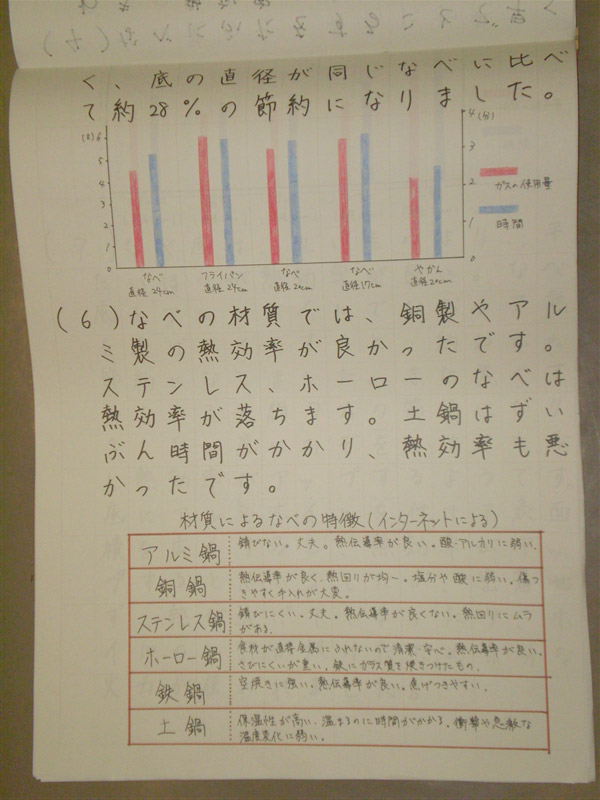 く、底の直径が同じなべに比べ
て約28%の節約になりました。
(ℓ)
6
5
4
3
2
1
0
4(分)
3
2
1
0
ガスの使用量
時間
なべ 直径24cm
フライパン 直径24cm
なべ 直径20cm
なべ 直径17cm
やかん 直径20cm
(6)なべの材質では、銅製やアル
ミ製の熱効率が良かったです。
ステンレス、ホーローのなべは
熱効率が落ちます。土鍋はずい
ぶん時間がかかり、熱効率も悪
かったです。
材質によるなべの特徴(インターネットによる)
アルミ鍋
錆びない。丈夫。熱伝導率が良い。酸・アルカリに弱い。
銅鍋
熱伝導率が良く、熱回りが均一。塩分や酸に弱い。傷つ
きやすく手入れが大変。
ステンレス鍋
錆びにくい。丈夫。熱伝導率が良くない。熱回りにムラ
がある。
ホーロー鍋
食材が直接金属にふれないので清潔・安心。熱伝導率が良い。
さびにくいが重い。鉄にガラス質を焼きつけたもの。
鉄鍋
空焼きに強い。熱伝導率が良い。焦げつきやすい。
土鍋
保温性が高い。温まるのに時間がかかる。衝撃や急激な
温度変化に弱い。